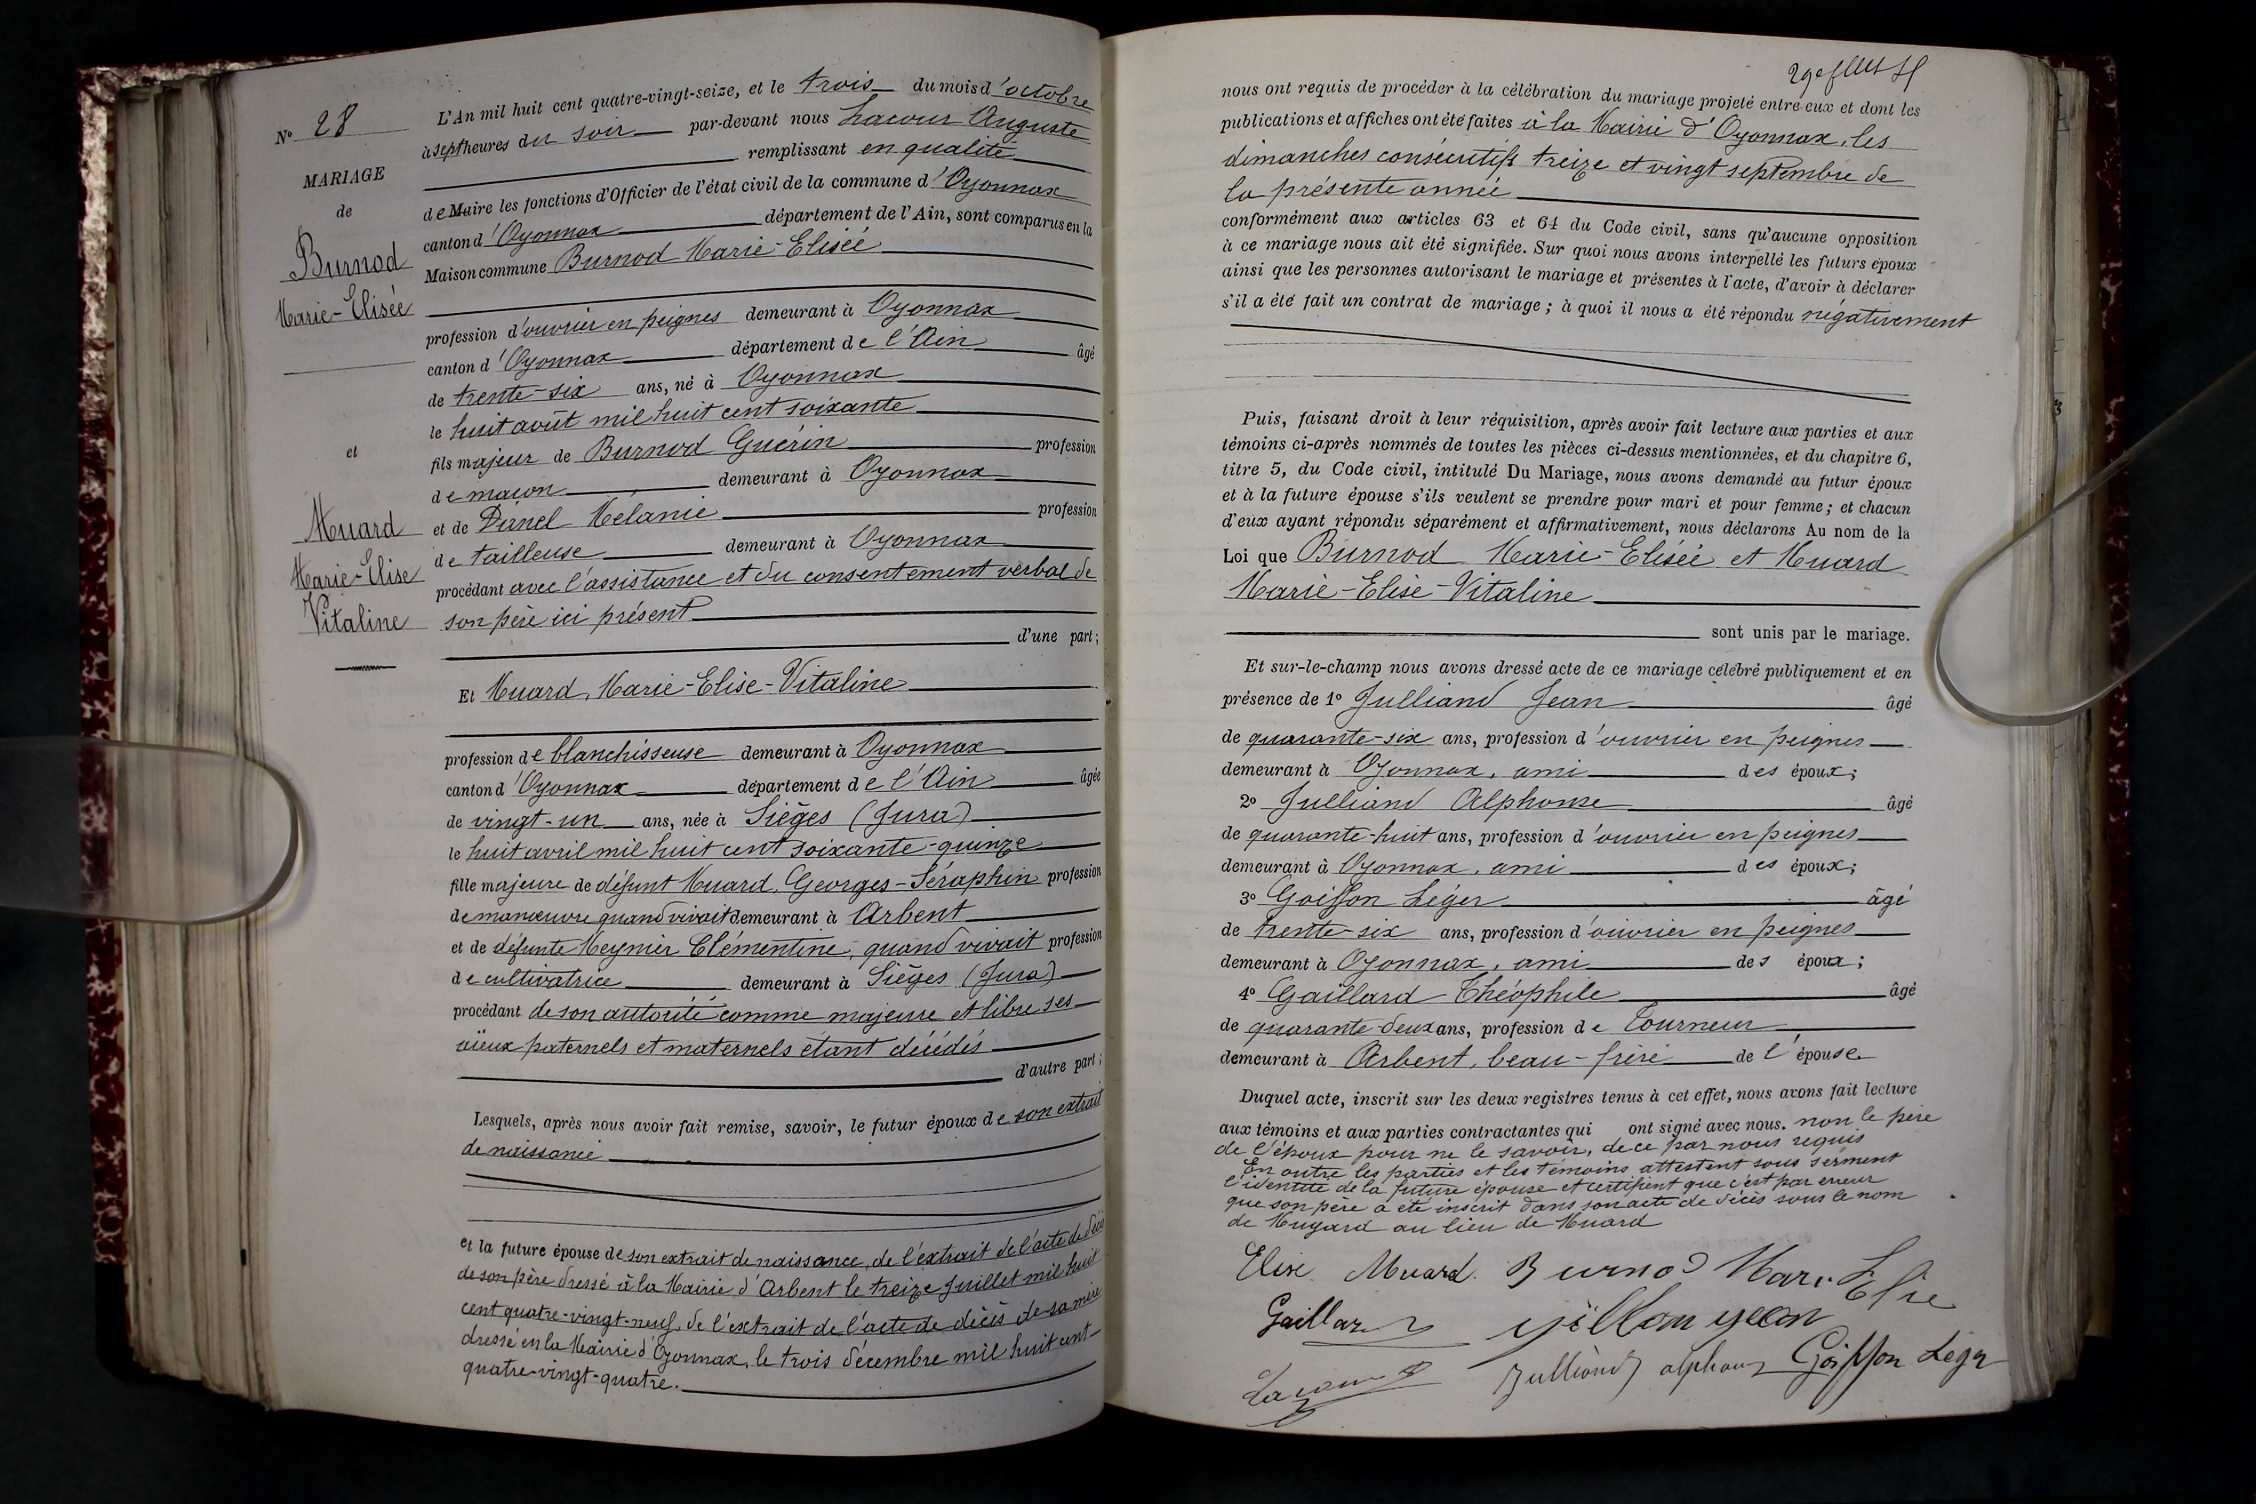 N° 28
MARIAGE
de
Burnod
Marie-Elisée
et
Muard
Marie-Elise
Vitaline
L'An mil huit cent quatre-vingt-seize, et le trois du mois d'octobre
à sept heures du soir par-devant nous Lacour Auguste
remplissant en qualité
de Maire les fonctions d'Officier de l'état civil de la commune d'Oyonnax
canton d'Oyonnax département de l'Ain, sont comparus en la
Maison commune Burnod Marie-Elisée
profession d'ouvrier en peignes demeurant à Oyonnax
canton d'Oyonnax département de l'Ain âgé
de trente-six ans, né à Oyonnax
le huit août mil huit cent soixante
fils majeur de Burnod Guérin profession
de maçon demeurant à Oyonnax
et de Mélanie profession
de tailleuse demeurant à Oyonnax
procédant avec l'assistance et du consentement verbal de
son père ici présent
d'une part;
Et Muard, Marie-Elise-Vitaline
profession de blanchisseuse demeurant à Oyonnax
canton d'Oyonnax département de l'Ain âgée
de vingt-un ans, née à Sièges (Jura)
le huit avril mil huit cent soixante-quinze
fille majeure de défunt Muard, Georges-Séraphin profession
de manœuvre quand vivait demeurant à Arbent
et de défunte Meynier Clémentine, quand vivait profession
de cultivatrice demeurant à Sièges (Jura)
procédant de son autorité comme majeure et libre ses
aïeux paternels et maternels étant décédés
d'autre part;
Lesquels, après nous avoir fait remise, savoir, le futur époux de son extrait
de naissance
et la future épouse de son extrait de naissance, de l'extrait de l'acte de décès
de son père dressé à la Mairie d'Arbent le treize Juillet mil huit
cent quatre-vingt-neuf, de l'extrait de l'acte de décès de sa mère
dressé en la Mairie d'Oyonnax, le trois décembre mil huit cent
quatre-vingt-quatre.
nous ont requis de procéder à la célébration du mariage projeté entre eux et dont les
publications et affiches ont été faites à la Mairie d'Oyonnax, les
dimanches consécutifs treize et vingt septembre de
la présente année
conformément aux articles 63 et 64 du Code civil, sans qu'aucune opposition
à ce mariage nous ait été signifiée. Sur quoi nous avons interpellé les futurs époux
ainsi que les personnes autorisant le mariage et présentes à l'acte, d'avoir à déclarer
s'il a été fait un contrat de mariage; à quoi il nous a été répondu négativement
Puis, faisant droit à leur réquisition, après avoir fait lecture aux parties et aux
témoins ci-après nommés de toutes les pièces ci-dessus mentionnées, et du chapitre 6,
titre 5, du Code civil, intitulé Du Mariage, nous avons demandé au futur époux
et à la future épouse s'ils veulent se prendre pour mari et pour femme; et chacun
d'eux ayant répondu séparément et affirmativement, nous déclarons Au nom de la
Loi que Burnod Marie-Elisée et Muard
Marie-Elise-Vitaline
sont unis par le mariage.
Et sur-le-champ nous avons dressé acte de ce mariage célébré publiquement et en
présence de 1° Julliand Jean âgé
de quarante-six ans, profession d'ouvrier en peignes
demeurant à Oyonnax, ami des époux;
2° Julliand Alphonse âgé
de quarante-huit ans, profession d'ouvrier en peignes
demeurant à Oyonnax, ami des époux;
3° Goiffon Léger âgé
de trente-six ans, profession d'ouvrier en peignes
demeurant à Oyonnax, ami des époux;
4° Gaillard Théophile âgé
de quarante-deux ans, profession de Tourneur
demeurant à Arbent, beau-frère de l'épouse
Duquel acte, inscrit sur les deux registres tenus à cet effet, nous avons fait lecture
aux témoins et aux parties contractantes qui ont signé avec nous. non le père
de l'époux pour ne le savoir, de ce par nous requis
En outre les parties et les témoins attestent sous serment
l'identité de la future épouse et certifient que c'est par erreur
que son père a été inscrit dans son acte de décès sous le nom
de Muyard au lieu de Muard
Elise Muard. Burnod Mari Elise
Gaillard
Lacour Julliand alphons Goiffon Léger